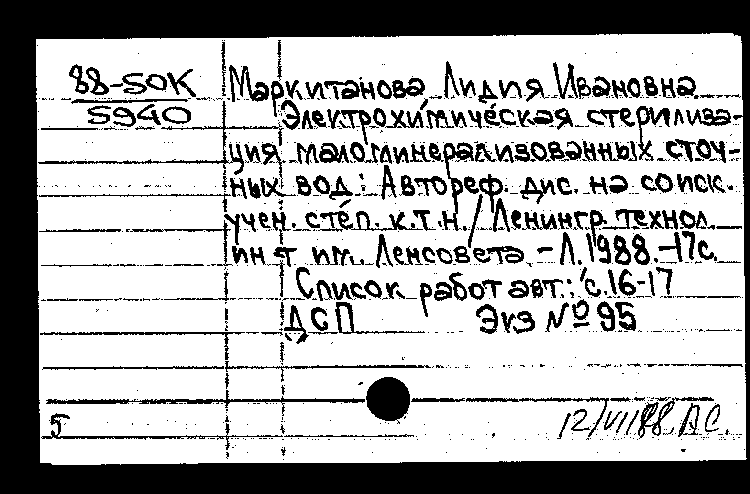 88-50К
5940
Маркитанова Лидия Ивановна
Электрохимическая стерилиза-
ция маломинерализованных сточ-
ных вод: Автореф. дис. на соиск.
учен. степ. к.т.н./Ленингр. технол.
ин-т им. Ленсовета. - Л. 1988. - 17с.
Список работ авт.: с. 16-17
ДСП Экз № 95
5 12/VII 88 АС.